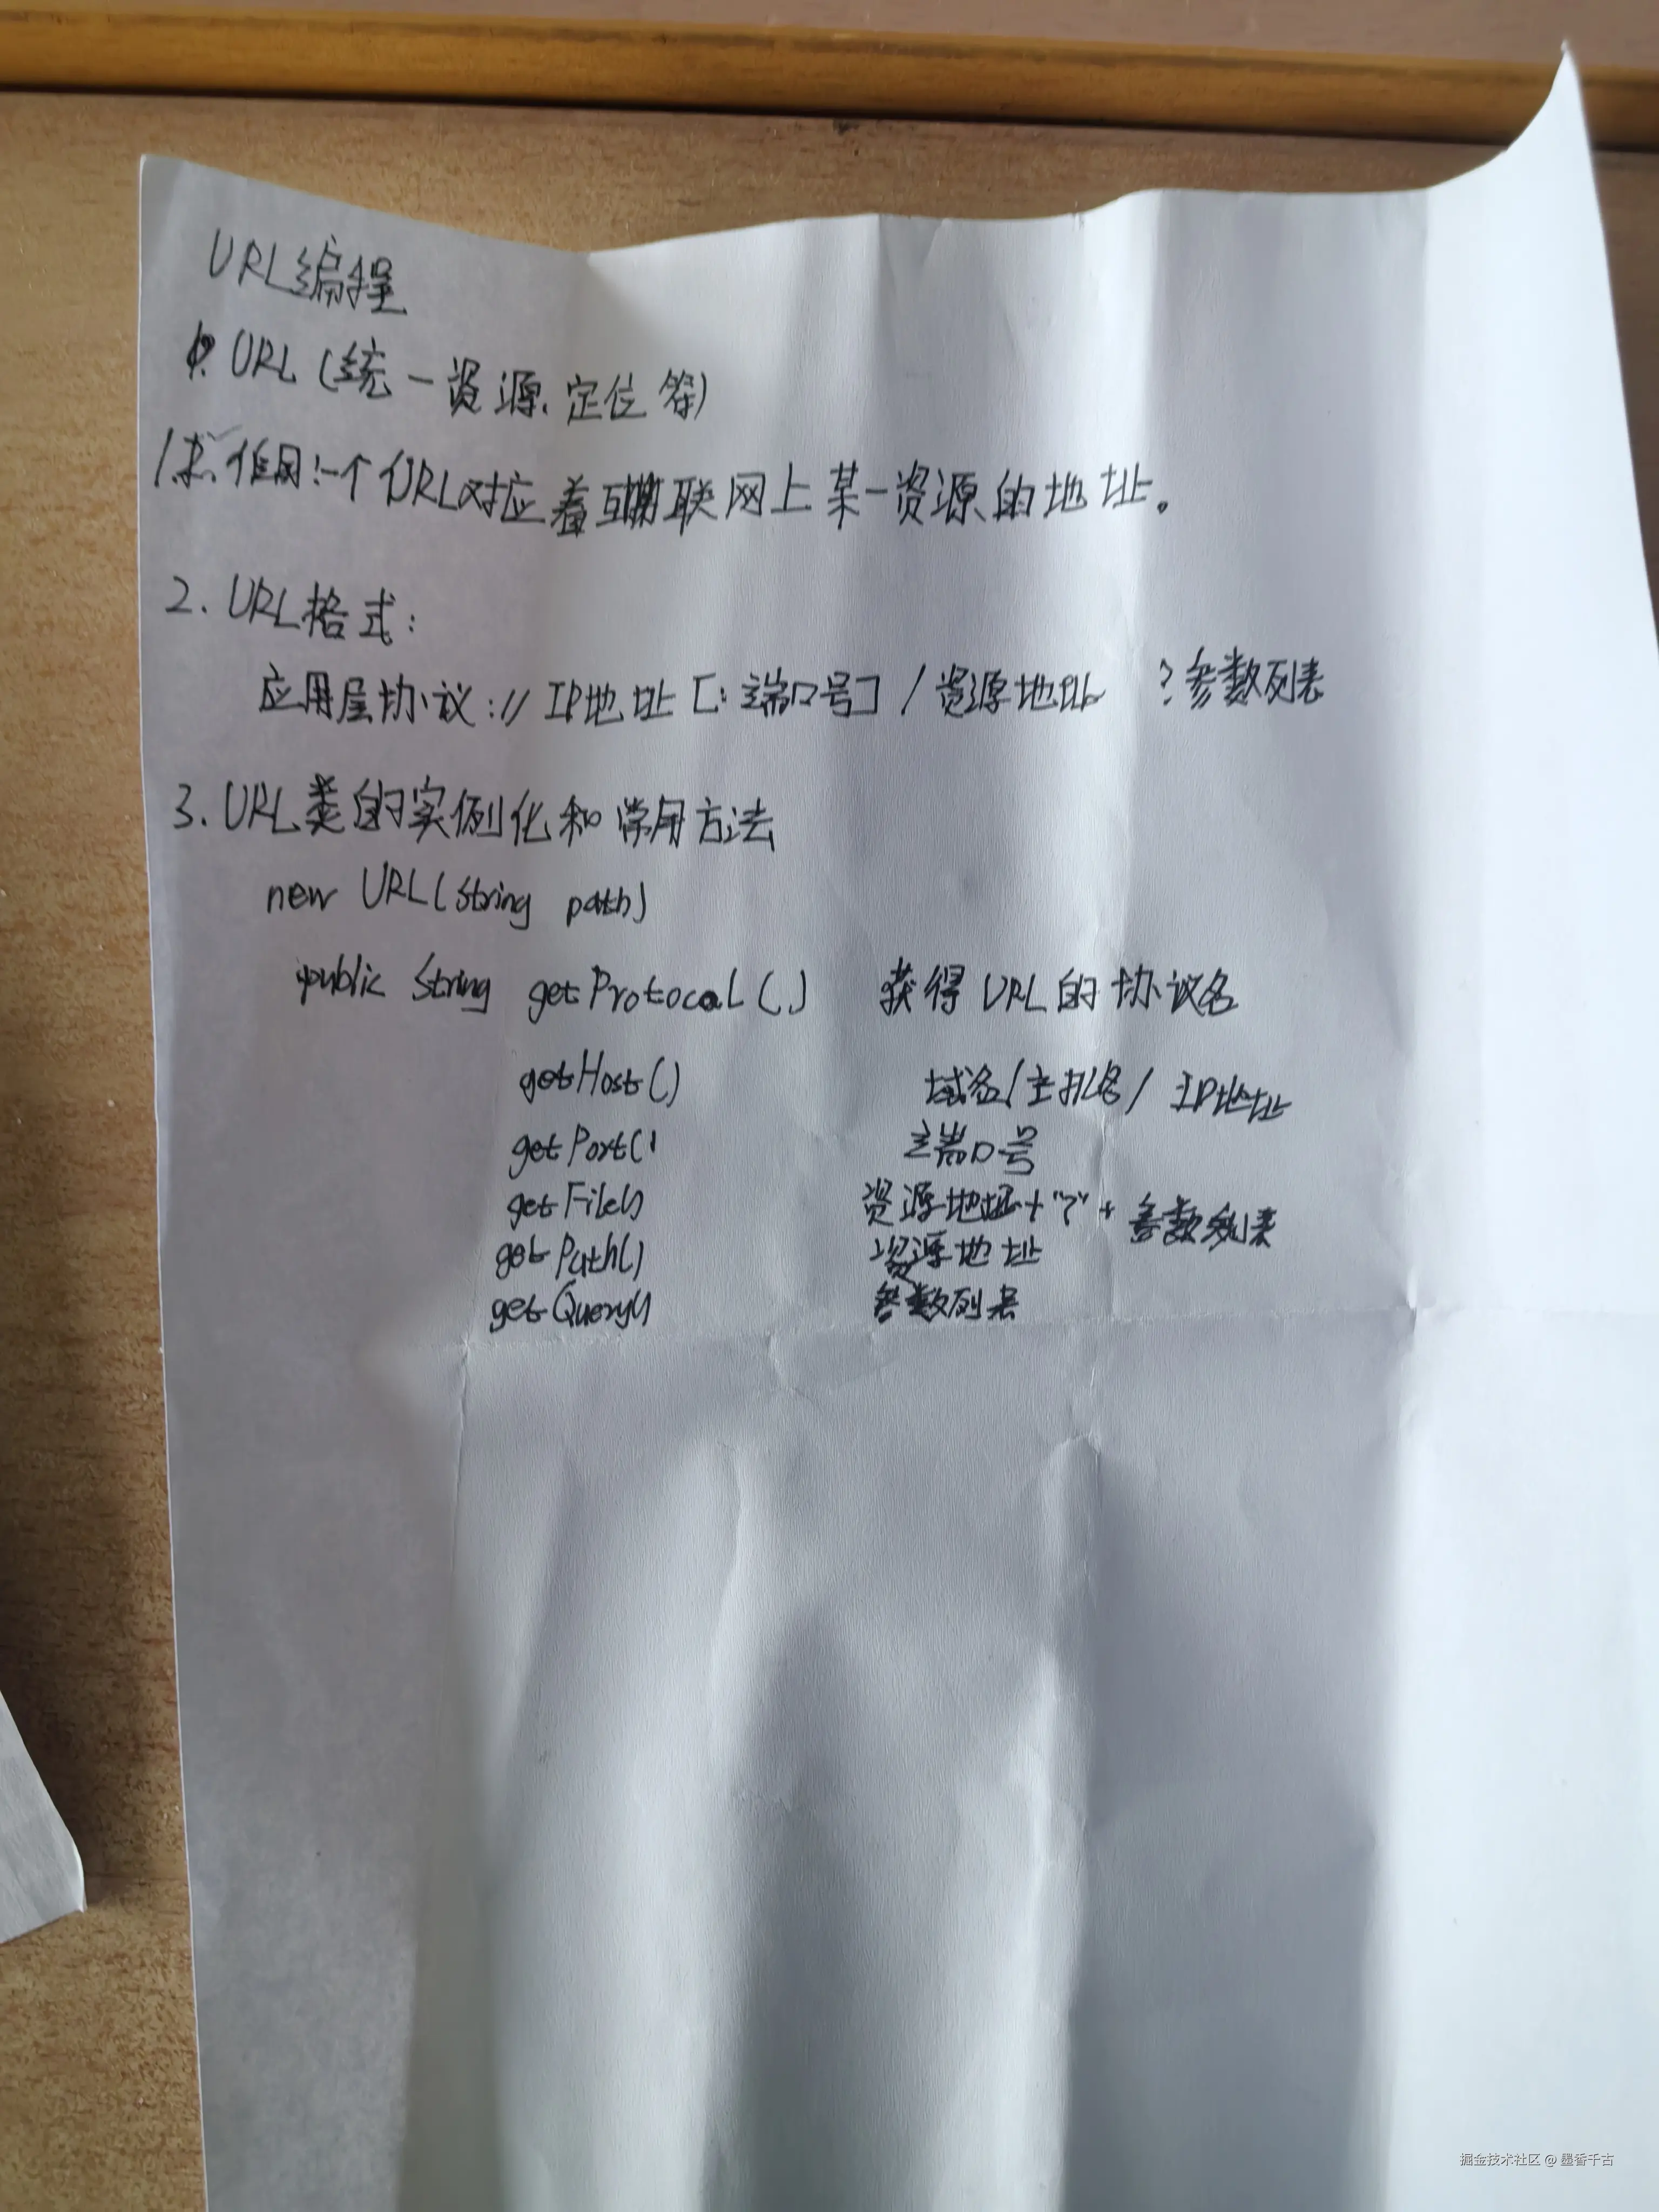 URL编程
URL(统一资源定位符)
1. 作用:一个URL对应着互联网上某一资源的地址。
2. URL格式:
应用层协议:// IP地址[:端口号] / 资源地址 ?参数列表
3. URL类的实例化和常用方法
new URL(String path)
public String getProtocal() 获得URL的协议名
getHost() 域名/主机名/ IP地址
getPort() 端口号
getFile() 资源地址+"?"+参数列表
getPath() 资源地址
getQuery() 参数列表
掘金技术社区 @ 墨香千古